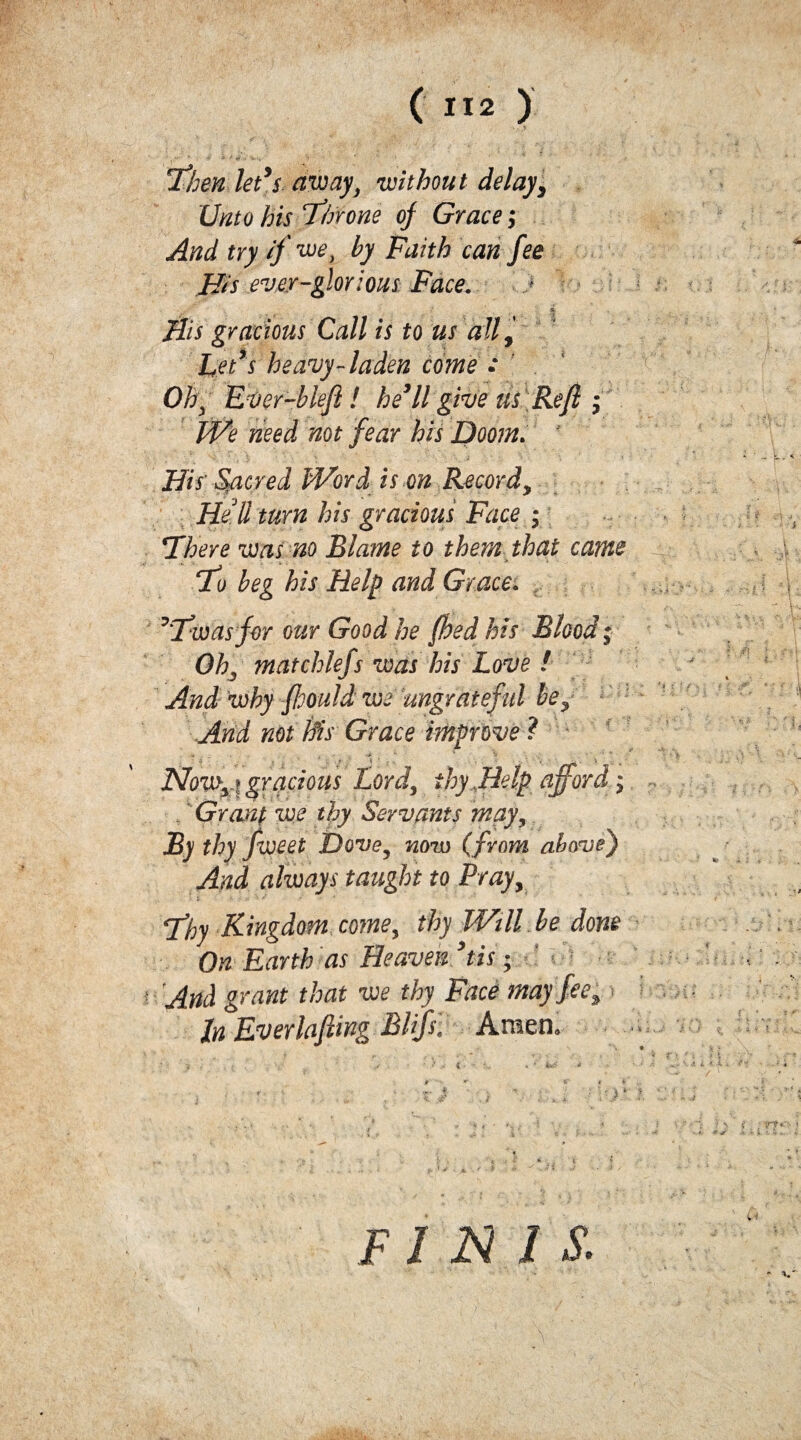 ( 112 )
Then let's away, without delay,
Unto his Throne of Grace;
And try if we, by Faith can ſee
His ever-glorious Face.
His gracious Call is to us all,
Let's heavy-laden come :
Oh, Ever-bleſt ! he'll give us Reſt ;
We need not fear his Doom.
His Sacred Word is on Record,
He'll turn his gracious Face ;
There was no Blame to them that came
To beg his Help and Grace.
'Twas for our Good he ſhed his Blood ;
Oh, matchleſs was his Love !
And why ſhould we ungrateful be,
And not his Grace improve ?
Now, gracious Lord, thy Help afford ;
Grant we thy Servants may,
By thy ſweet Dove, now (from above)
And always taught to Pray,
Thy Kingdom come, thy Will be done
On Earth as Heaven 'tis ;
And grant that we thy Face may ſee,
In Everlaſting Bliſs. Amen.
FINIS.